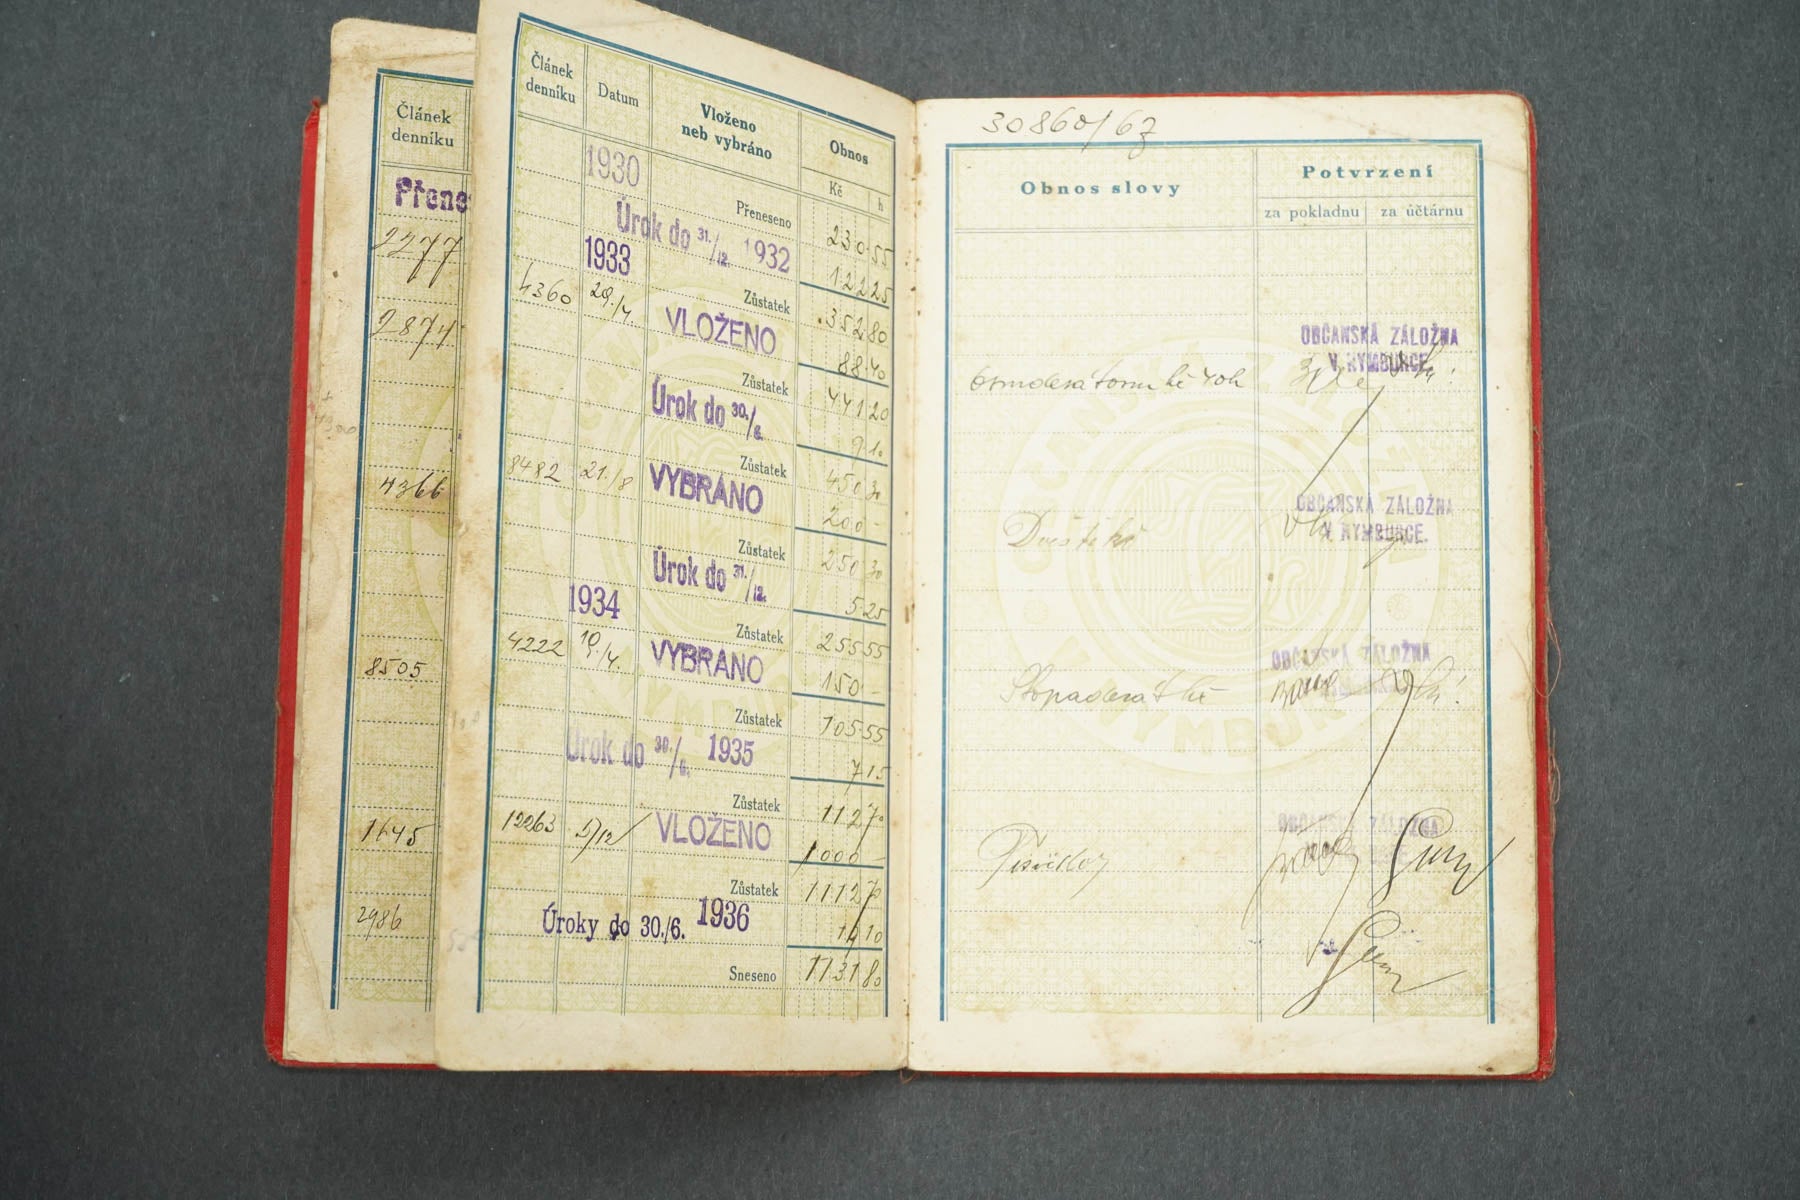 Článek
denníku
Přene
2277
2874
4366
8505
1145
2986
Článek denníku Datum Vloženo neb vybráno Obnos
Kč h
1930
Přeneseno 230 55
Úrok do 31./12. 1932 122 25
1933
Zůstatek 352 80
4360 29./4. VLOŽENO 88 40
Zůstatek 441 20
Úrok do 30./6. 9 10
Zůstatek 450 30
8482 21./8 VYBRÁNO 200 -
Zůstatek 250 30
Úrok do 31./12. 5 25
1934
Zůstatek 255 55
4222 10./4. VYBRÁNO 150 -
Zůstatek 105 55
Úrok do 30./6. 1935 7 15
Zůstatek 112 70
12263 5/12 VLOŽENO 1000 -
Zůstatek 1112 70
Úroky do 30./6. 1936 19 10
Sneseno 1131 80
30860/67
Obnos slovy Potvrzení
za pokladnu za účtárnu
OBČANSKÁ ZÁLOŽNA
V NYMBURCE.
osmdesátosm kč 40h
OBČANSKÁ ZÁLOŽNA
V NYMBURCE.
Dvěstě kč
OBČANSKÁ ZÁLOŽNA
Stopadesát kč
OBČANSKÁ ZÁLOŽNA